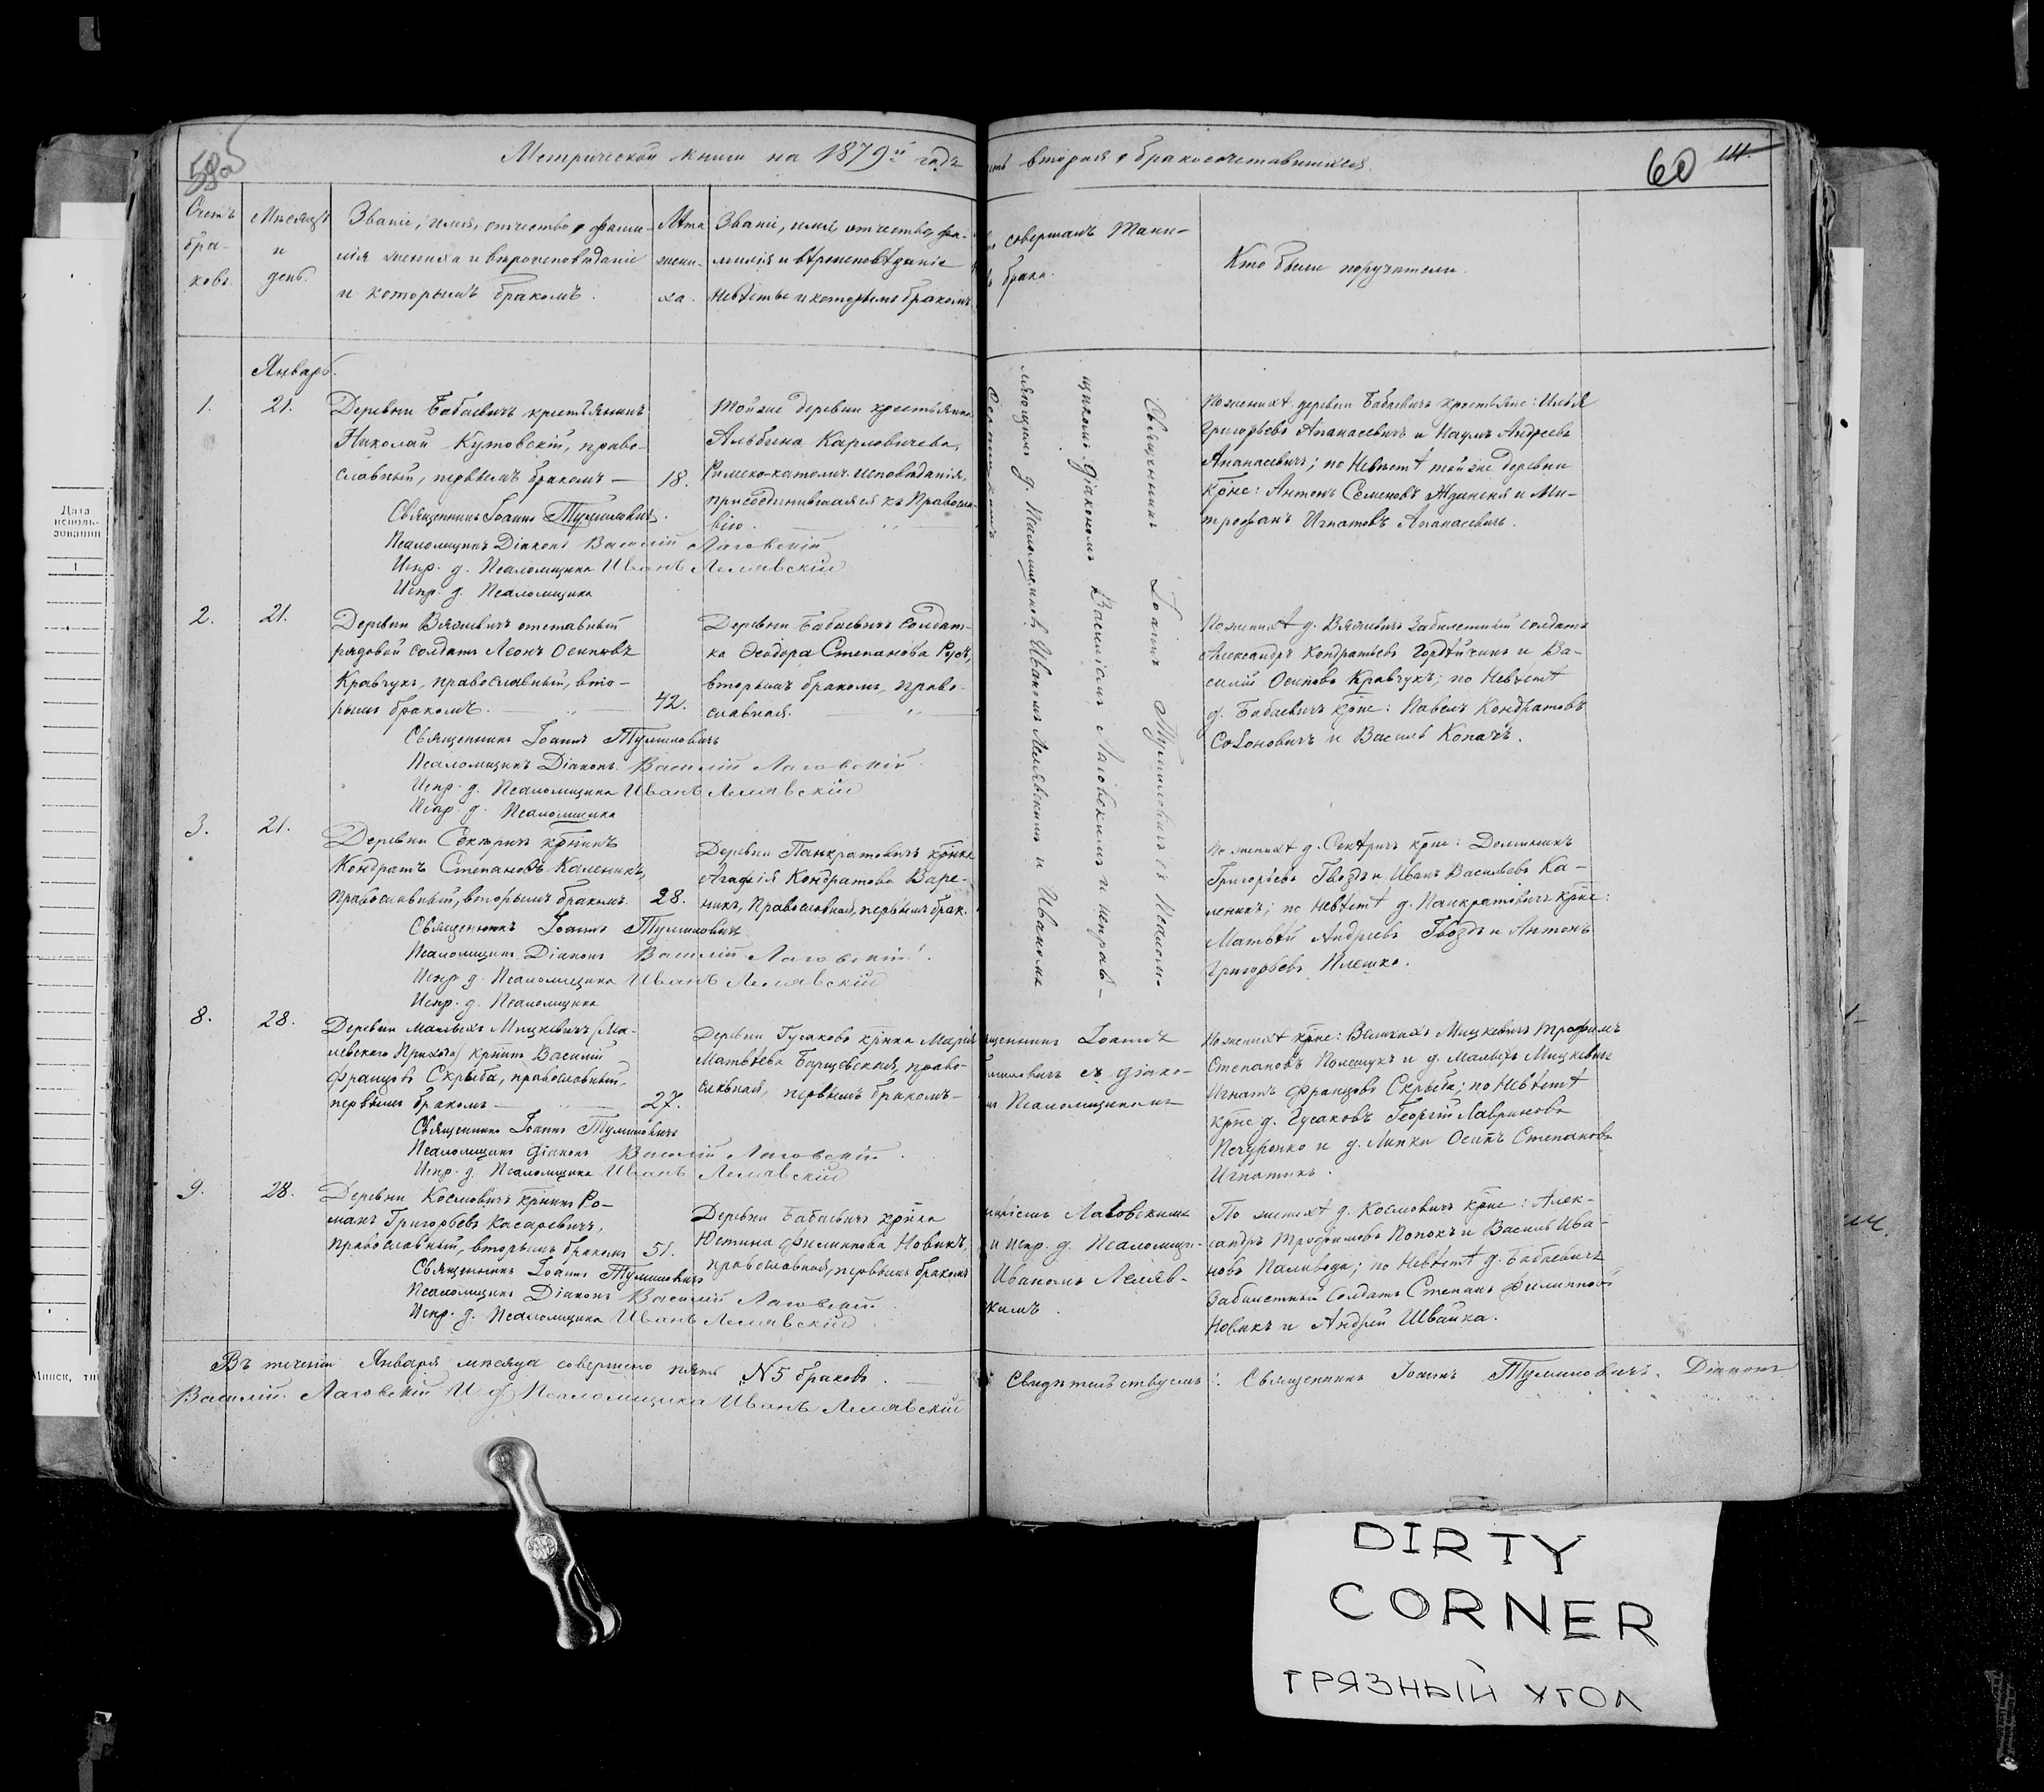 58об
Метрической книги на 1879й годъ
Счетъ бра- ковъ.
Мѣсяцъ и день.
Званіе, имя, отчество, фами-
лія жениха и вѣроисповѣданіе
и которымъ бракомъ.
Лѣта жени- ха.
Званіе, имя, отчество, фа-
милія и вѣроисповѣданіе
невѣсты и которымъ бракомъ
Январь.
1. 21.
Деревни Бабаевичъ крестьянинъ
Николай Кутовскій, право-
славный, первымъ бракомъ —
18.
Тойже деревни крестьянка
Альбина Карловичева,
Римско-католич. исповѣданія,
присоединившаяся къ Правосла-
вію.
Священникъ Іоаннъ Тумиловичъ.
Псаломщикъ Діаконъ Василій Лаговскій
Испр. д. Псаломщика Иванъ Лелявскій
Испр. д. Псаломщика
2. 21.
Деревни Вязмевичъ отставный
рядовой солдатъ Леонъ Осиповъ
Кравчукъ, православный, вто-
рымъ бракомъ.
42.
Деревни Бабаевичъ солдат-
ка Ѳеодора Степанова
вторымъ бракомъ, право-
славная.
Священникъ Іоаннъ Тумиловичъ
Псаломщикъ Діаконъ Василій Лаговскій.
Испр. д. Псаломщика Иванъ Лелявскій
Испр. д. Псаломщика
3. 21.
Деревни Секѣричъ крнинъ
Кондратъ Степановъ Каленикъ,
православный, вторымъ бракомъ.
28.
Деревни Панкратовичъ крнка
Агафія Кондратова Варе-
никъ, Православная, первымъ брак.
Священникъ Іоаннъ Тумиловичъ
Псаломщикъ Діаконъ Василій Лаговскій.
Испр. д. Псаломщика Иванъ Лелявскій
Испр. д. Псаломщика
8. 28.
Деревни Малыхъ Мицкевичъ (Ма-
левскаго Прихода) крнинъ Василій
Францовъ Скрыба, православный,
первымъ бракомъ —
27.
Деревни Гусаково крнка Марія
Матвѣева Борщевская, право-
славная, первымъ бракомъ —
Священникъ Іоаннъ Тумиловичъ
Псаломщикъ Діаконъ Василій Лаговскій.
Испр. д. Псаломщика Иванъ Лелявскій
9. 28.
Деревни Космовичъ крнинъ Ро-
манъ Григорьевъ Касаревичъ,
православный, вторымъ бракомъ
51.
Деревни Бабаевичъ крнка
Юстина Филиппова Новикъ,
православная, первымъ бракомъ
Священникъ Іоаннъ Тумиловичъ
Псаломщикъ Діаконъ Василій Лаговскій
Испр. д. Псаломщика Иванъ Лелявскій
Въ теченіи Января мѣсяца совершено пять №5 браковъ.
Василій Лаговскій И. д. Псаломщика Иванъ Лелявскій
вторая о бракосочетавшихся.
60
совершалъ Таин-
брака.
Кто были поручители.
Священникъ Іоаннъ Тумиловичъ съ Псалом-
щикомъ Діакономъ Василіемъ Лаговскимъ и исправ-
ляющимъ д. Псаломщиковъ Иваномъ Лелявскимъ и Иваномъ
По женихѣ деревни Бабаевичъ крестьяне: Илья
Григорьевъ Апанасевичъ и Наумъ Андреевъ
Апанасевичъ; по невѣстѣ тойже деревни
крне: Антонъ Семеновъ Жданеня и Ми-
трофанъ Игнатовъ Апанасевичъ.
По женихѣ д. Вязмевичъ забилетный солдатъ
Александръ Кондратьевъ Гордѣйчикъ и Ва-
силій Осиповъ Кравчукъ; по невѣстѣ
д. Бабаевичъ крне: Павелъ Кондратовъ
Солоновичъ и Василь Копачъ.
По женихѣ д. Секѣричъ крне: Доминикъ
Григорьевъ Гвоздь и Иванъ Васильевъ Ка-
леникъ; по невѣстѣ д. Панкратовичъ крне:
Матвѣй Андреевъ Гвоздь и Антонъ
Григорьевъ Плешко.
Іоаннъ
съ діако-
Псаломщикомъ
По женихѣ крне: Великихъ Мицкевичъ Трофимъ
Степановъ Полещукъ и д. Малыхъ Мицкевичъ
Игнатъ Францовъ Скрыба; по невѣстѣ
крне д. Гусаковъ Георгій Лавриновъ
Печуренко и д. Липки Осипъ Степановъ
Игнатикъ.
Лаговскимъ
и испр. д. Псаломщи-
Иваномъ Леляв-
скимъ.
По женихѣ д. Космовичъ крне: Алек-
сандръ Трофимовъ Попокъ и Василь Ива-
новъ Паливода; по невѣстѣ д. Бабаевичъ
забилетный солдатъ Степанъ Филипповъ
Новикъ и Андрей Швайка.
Свидѣтельствуемъ: Священникъ Іоаннъ Тумиловичъ. Діаконъ
Дата
исполь-
зования
1
DIRTY
CORNER
ГРЯЗНЫЙ УГОЛ